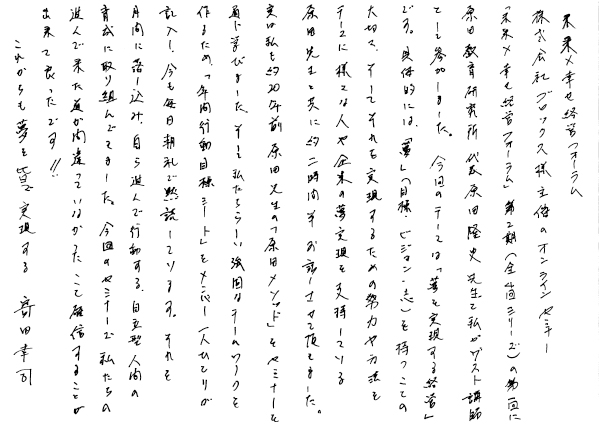 未来×幸せ経営フォーラム
株式会社ブロックス様主催のオンラインセミナー
「未来×幸せ経営フォーラム」第2期(全4回シリーズ)の第一回に
原田教育研究所 代表 原田隆史先生と私がゲスト講師
として参加しました。 今回のテーマは「夢を実現する経営」
です。具体的には、「夢」(目標・ビジョン・志)を持つことの
大切さ、そしてそれを実現するための努力や方法を
テーマに様々な人や企業の夢実現を支援している
原田先生と共に約二時間半お話しさせて頂きました。
実は私も約20年前 原田先生の「原田メソッド」をセミナーを
通じ学びました。そして私たちらしい強固なチームワークを
作るため、「年間行動目標シート」をメンバー一人ひとりが
記入し、今も毎日朝礼で黙読しています。 それを
月間に落し込み、自ら進んで行動する、自立型人間の
育成に取り組んできました。今回のセミナーで私たちの
進んで来た道が間違っていなかったこと確信することが
出来て良かったです!!
これからも夢を皆で実現する 寄田幸司